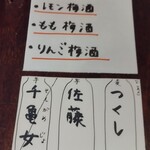 ・レモン梅酒
・もも梅酒
・りんご梅酒
麦
つくし
芋
佐藤
芋
千亀女
せんがめじょ